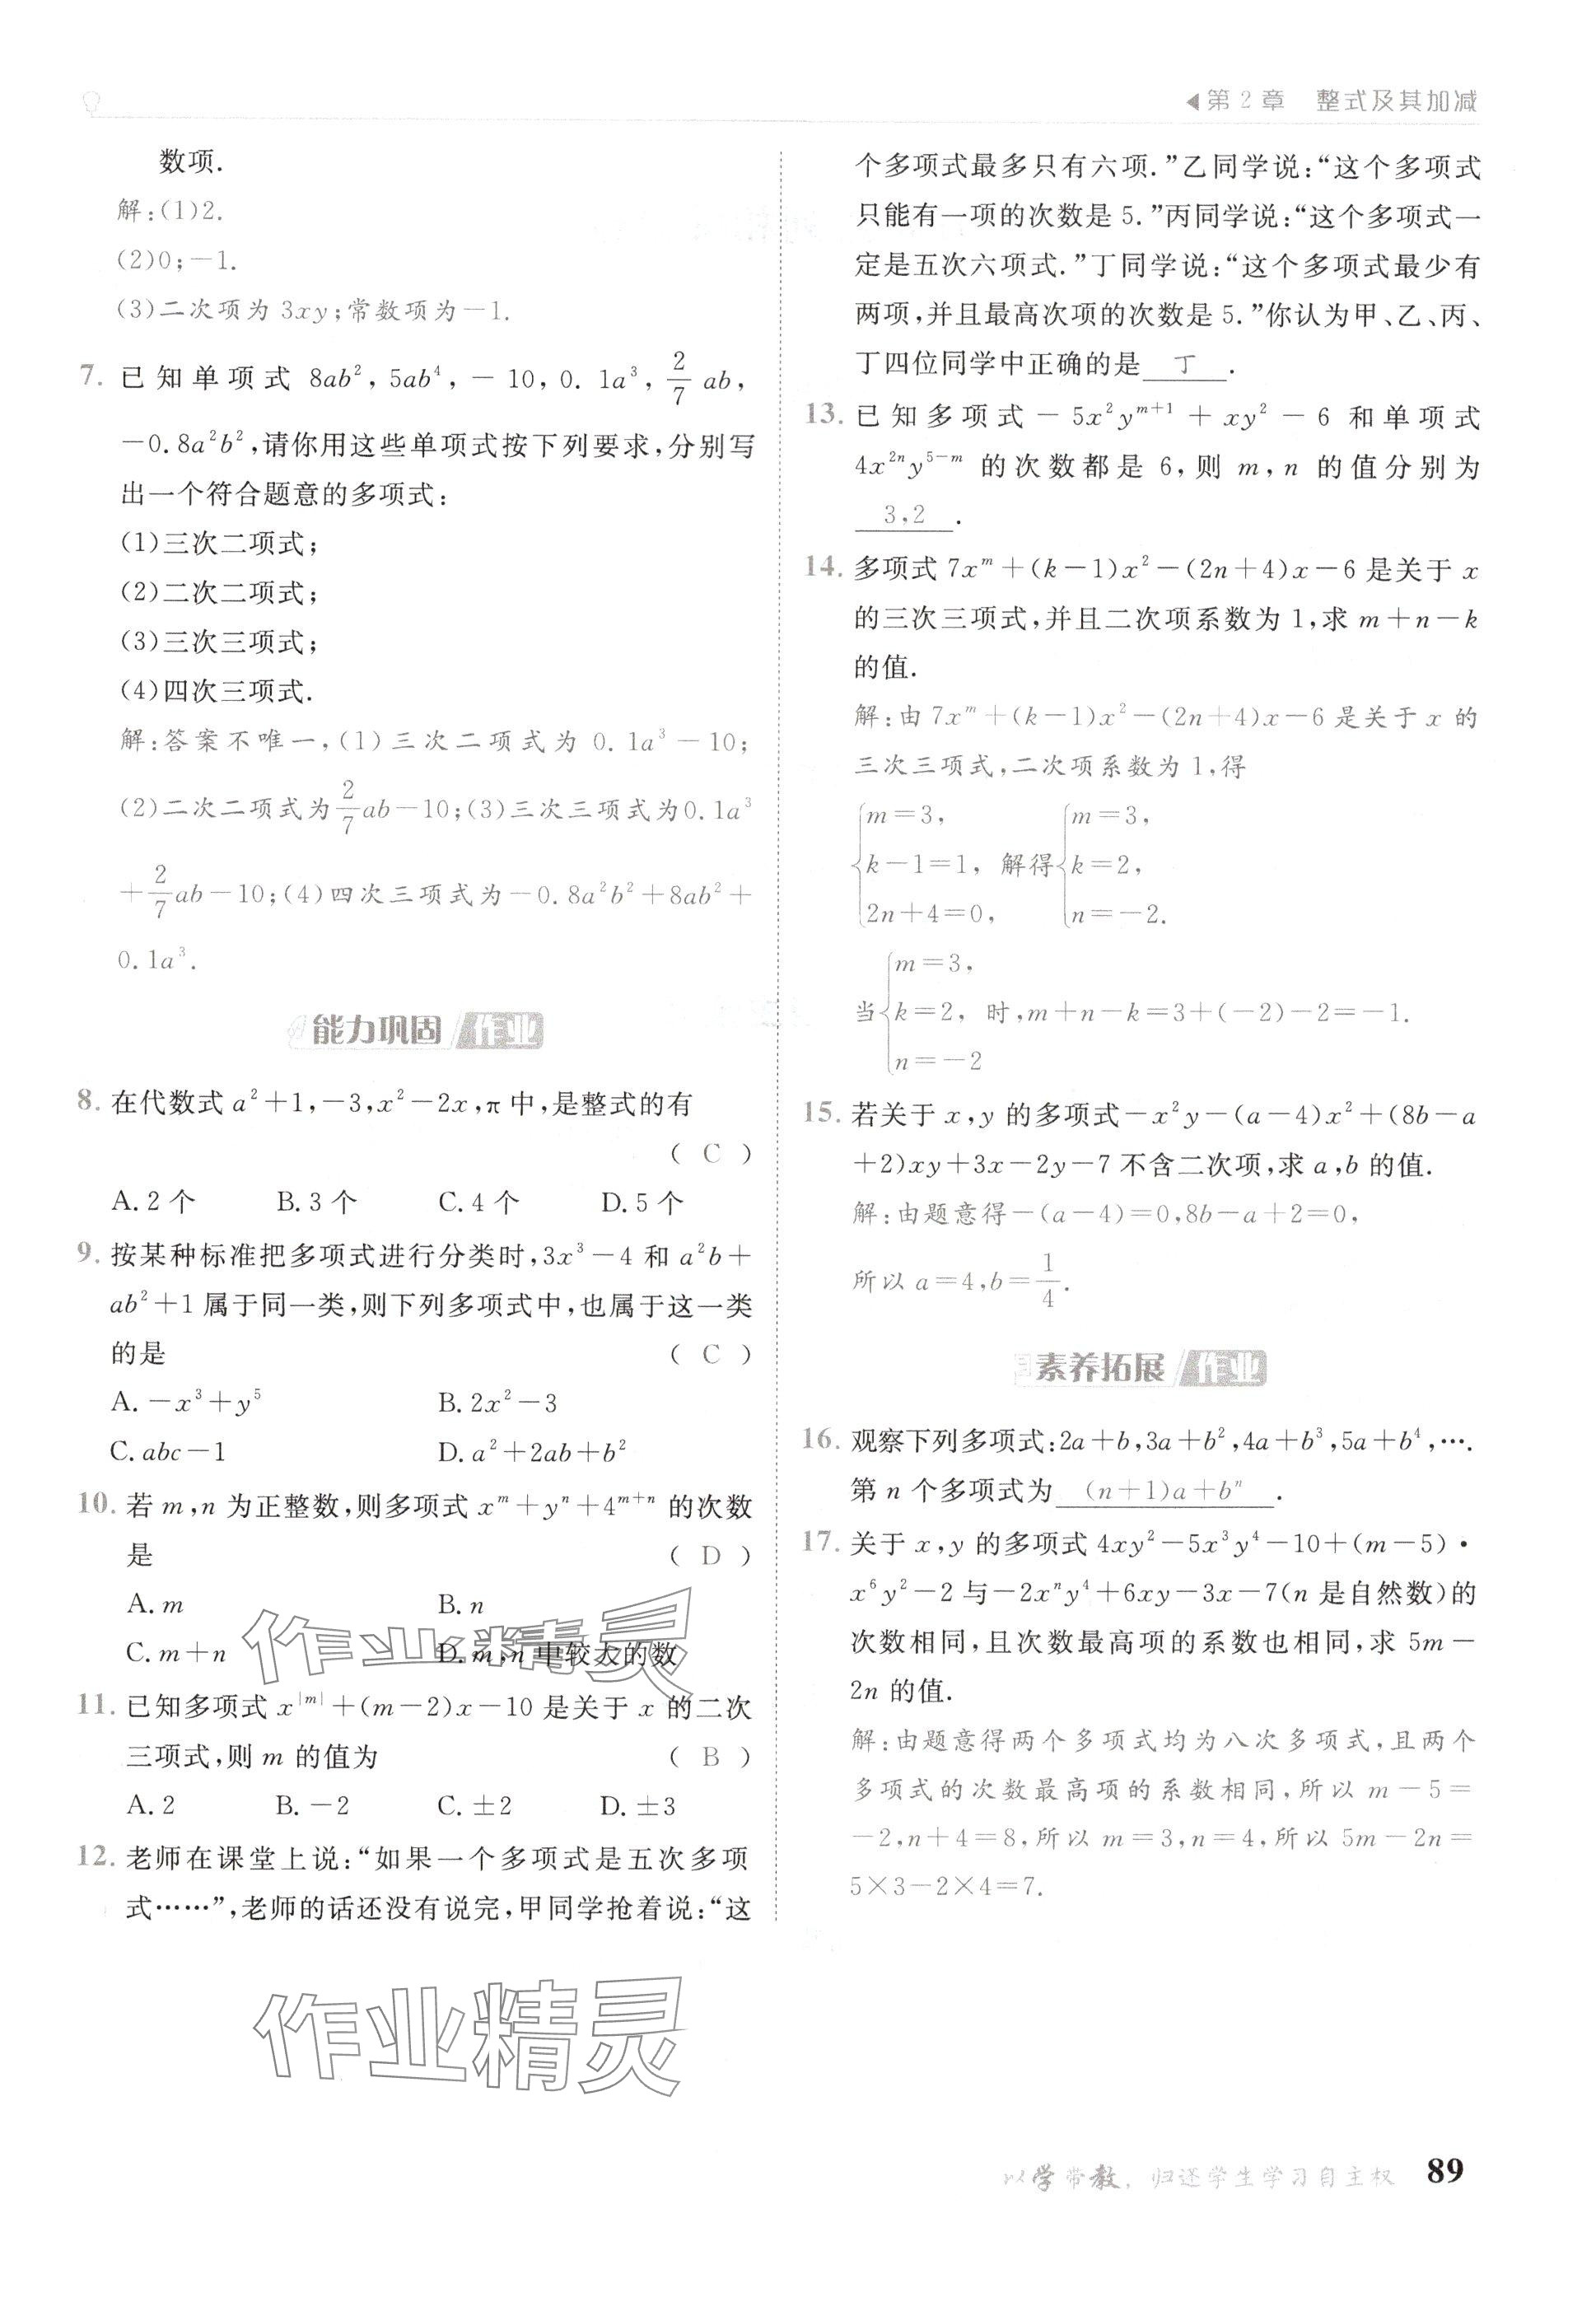 ◀第2章 整式及其加减
数项.
解:(1)2.
(2)0;-1.
(3)二次项为 3xy;常数项为-1.
7. 已知单项式 8ab²,5ab⁴,-10,0.1a³,2/7 ab,
-0.8a²b²,请你用这些单项式按下列要求,分别写
出一个符合题意的多项式:
(1)三次二项式;
(2)二次二项式;
(3)三次三项式;
(4)四次三项式.
解:答案不唯一,(1)三次二项式为 0.1a³-10;
(2)二次二项式为2/7ab-10;(3)三次三项式为0.1a³
+2/7ab-10;(4)四次三项式为-0.8a²b²+8ab²+
0.1a³.
能力巩固 作业
8. 在代数式 a²+1,-3,x²-2x,π中,是整式的有
( C )
A. 2个 B. 3个 C. 4个 D. 5个
9. 按某种标准把多项式进行分类时,3x³-4 和 a²b+
ab²+1属于同一类,则下列多项式中,也属于这一类
的是 ( C )
A. -x³+y⁵ B. 2x²-3
C. abc-1 D. a²+2ab+b²
10. 若 m,n 为正整数,则多项式 xᵐ+yⁿ+4ᵐ⁺ⁿ 的次数
是 ( D )
A. m B. n
C. m+n D. m,n 中较大的数
11. 已知多项式 x^|m|+(m-2)x-10是关于 x 的二次
三项式,则 m 的值为 ( B )
A. 2 B. -2 C. ±2 D. ±3
12. 老师在课堂上说:“如果一个多项式是五次多项
式……”,老师的话还没有说完,甲同学抢着说:“这
个多项式最多只有六项.”乙同学说:“这个多项式
只能有一项的次数是 5.”丙同学说:“这个多项式一
定是五次六项式.”丁同学说:“这个多项式最少有
两项,并且最高次项的次数是 5.”你认为甲、乙、丙、
丁四位同学中正确的是 丁 .
13. 已知多项式-5x²yᵐ⁺¹+xy²-6 和单项式
4x²ⁿy⁵⁻ᵐ 的次数都是 6,则 m,n 的值分别为
3,2 .
14. 多项式 7xᵐ+(k-1)x²-(2n+4)x-6是关于 x
的三次三项式,并且二次项系数为 1,求 m+n-k
的值.
解:由 7xᵐ+(k-1)x²-(2n+4)x-6是关于 x 的
三次三项式,二次项系数为 1,得
m=3, m=3,
k-1=1, 解得 k=2,
2n+4=0, n=-2.
m=3,
当 k=2, 时,m+n-k=3+(-2)-2=-1.
n=-2
15. 若关于 x,y 的多项式-x²y-(a-4)x²+(8b-a
+2)xy+3x-2y-7不含二次项,求a,b的值.
解:由题意得-(a-4)=0,8b-a+2=0,
所以 a=4,b=1/4.
素养拓展 作业
16. 观察下列多项式:2a+b,3a+b²,4a+b³,5a+b⁴,….
第 n 个多项式为 (n+1)a+bⁿ .
17. 关于 x,y 的多项式 4xy²-5x³y⁴-10+(m-5)·
x⁶y²-2与-2xⁿy⁴+6xy-3x-7(n 是自然数)的
次数相同,且次数最高项的系数也相同,求 5m-
2n 的值.
解:由题意得两个多项式均为八次多项式,且两个
多项式的次数最高项的系数相同,所以 m-5=
-2,n+4=8,所以 m=3,n=4,所以 5m-2n=
5×3-2×4=7.
作业精灵
作业精灵
以学带教,归还学生学习自主权 89